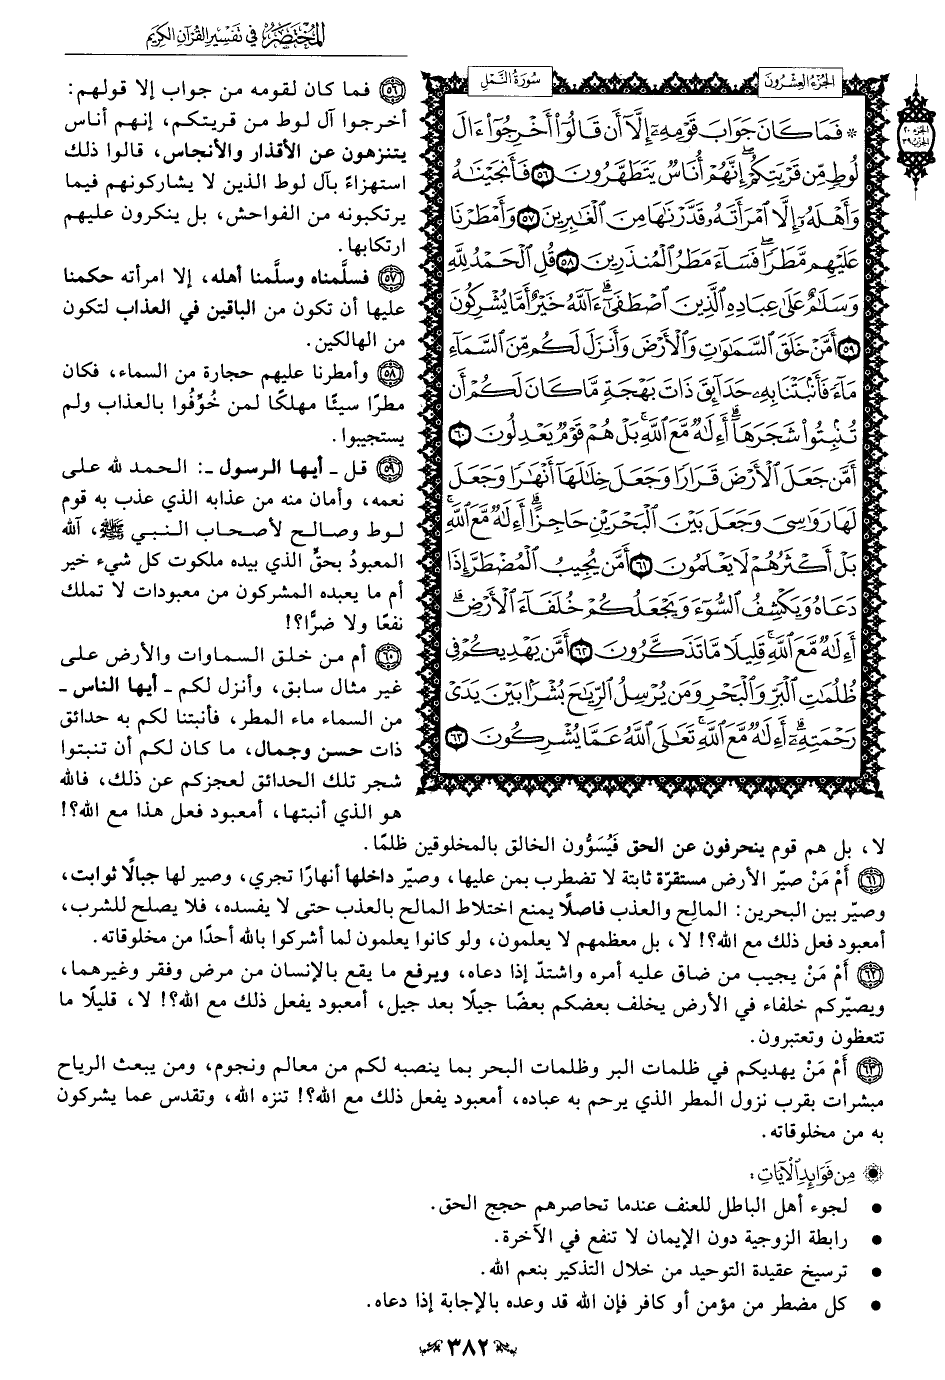 المختصر في تفسير القرآن الكريم
الجزء العشرون
سورة النمل
الجزء ٢٠
الحزب ٣٩
* فَمَا كَانَ جَوَابَ قَوْمِهِۦٓ إِلَّآ أَن قَالُوٓا۟ أَخْرِجُوٓا۟ ءَالَ
لُوطٍ مِّن قَرْيَتِكُمْ ۖ إِنَّهُمْ أُنَاسٌ يَتَطَهَّرُونَ ٥٦ فَأَنجَيْنَـٰهُ
وَأَهْلَهُۥٓ إِلَّا ٱمْرَأَتَهُۥ قَدَّرْنَـٰهَا مِنَ ٱلْغَـٰبِرِينَ ٥٧ وَأَمْطَرْنَا
عَلَيْهِم مَّطَرًا ۖ فَسَآءَ مَطَرُ ٱلْمُنذَرِينَ ٥٨ قُلِ ٱلْحَمْدُ لِلَّهِ
وَسَلَـٰمٌ عَلَىٰ عِبَادِهِ ٱلَّذِينَ ٱصْطَفَىٰٓ ۗ ءَآللَّهُ خَيْرٌ أَمَّا يُشْرِكُونَ
٥٩ أَمَّنْ خَلَقَ ٱلسَّمَـٰوَٰتِ وَٱلْأَرْضَ وَأَنزَلَ لَكُم مِّنَ ٱلسَّمَآءِ
مَآءً فَأَنۢبَتْنَا بِهِۦ حَدَآئِقَ ذَاتَ بَهْجَةٍ مَّا كَانَ لَكُمْ أَن
تُنۢبِتُوا۟ شَجَرَهَآ ۗ أَءِلَـٰهٌ مَّعَ ٱللَّهِ ۚ بَلْ هُمْ قَوْمٌ يَعْدِلُونَ ٦٠
أَمَّن جَعَلَ ٱلْأَرْضَ قَرَارًا وَجَعَلَ خِلَـٰلَهَآ أَنْهَـٰرًا وَجَعَلَ
لَهَا رَوَٰسِىَ وَجَعَلَ بَيْنَ ٱلْبَحْرَيْنِ حَاجِزًا ۗ أَءِلَـٰهٌ مَّعَ ٱللَّهِ ۚ
بَلْ أَكْثَرُهُمْ لَا يَعْلَمُونَ ٦١ أَمَّن يُجِيبُ ٱلْمُضْطَرَّ إِذَا
دَعَاهُ وَيَكْشِفُ ٱلسُّوٓءَ وَيَجْعَلُكُمْ خُلَفَآءَ ٱلْأَرْضِ ۗ
أَءِلَـٰهٌ مَّعَ ٱللَّهِ ۚ قَلِيلًا مَّا تَذَكَّرُونَ ٦٢ أَمَّن يَهْدِيكُمْ فِى
ظُلُمَـٰتِ ٱلْبَرِّ وَٱلْبَحْرِ وَمَن يُرْسِلُ ٱلرِّيَـٰحَ بُشْرًۢا بَيْنَ يَدَىْ
رَحْمَتِهِۦٓ ۗ أَءِلَـٰهٌ مَّعَ ٱللَّهِ ۚ تَعَـٰلَى ٱللَّهُ عَمَّا يُشْرِكُونَ ٦٣
٥٦ فما كان لقومه من جواب إلا قولهم:
أخرجوا آل لوط من قريتكم، إنهم أناس
يتنزهون عن الأقذار والأنجاس، قالوا ذلك
استهزاءً بآل لوط الذين لا يشاركونهم فيما
يرتكبونه من الفواحش، بل ينكرون عليهم
ارتكابها.
٥٧ فسلَّمناه وسلَّمنا أهله، إلا امرأته حكمنا
عليها أن تكون من الباقين في العذاب لتكون
من الهالكين.
٥٨ وأمطرنا عليهم حجارة من السماء، فكان
مطرًا سيئًا مهلكًا لمن خُوِّفُوا بالعذاب ولم
يستجيبوا.
٥٩ قل ـ أيها الرسول ـ: الحمد لله على
نعمه، وأمان منه من عذابه الذي عذب به قوم
لوط وصالح لأصحاب النبي ﷺ، آلله
المعبودُ بحقٍّ الذي بيده ملكوت كل شيء خير
أم ما يعبده المشركون من معبودات لا تملك
نفعًا ولا ضرًّا؟!
٦٠ أم من خلق السماوات والأرض على
غير مثال سابق، وأنزل لكم ـ أيها الناس ـ
من السماء ماء المطر، فأنبتنا لكم به حدائق
ذات حسن وجمال، ما كان لكم أن تنبتوا
شجر تلك الحدائق لعجزكم عن ذلك، فالله
هو الذي أنبتها، أمعبود فعل هذا مع الله؟!
لا، بل هم قوم ينحرفون عن الحق فَيُسَوُّون الخالق بالمخلوقين ظلمًا.
٦١ أَمْ مَنْ صيّر الأرض مستقرّة ثابتة لا تضطرب بمن عليها، وصيّر داخلها أنهارًا تجري، وصير لها جبالًا ثوابت،
وصيّر بين البحرين: المالِح والعذب فاصلًا يمنع اختلاط المالح بالعذب حتى لا يفسده، فلا يصلح للشرب،
أمعبود فعل ذلك مع الله؟! لا، بل معظمهم لا يعلمون، ولو كانوا يعلمون لما أشركوا بالله أحدًا من مخلوقاته.
٦٢ أَمْ مَنْ يجيب من ضاق عليه أمره واشتدّ إذا دعاه، ويرفع ما يقع بالإنسان من مرض وفقر وغيرهما،
ويصيّركم خلفاء في الأرض يخلف بعضكم بعضًا جيلًا بعد جيل، أمعبود يفعل ذلك مع الله؟! لا، قليلًا ما
تتعظون وتعتبرون.
٦٣ أَمْ مَنْ يهديكم في ظلمات البر وظلمات البحر بما ينصبه لكم من معالم ونجوم، ومن يبعث الرياح
مبشرات بقرب نزول المطر الذي يرحم به عباده، أمعبود يفعل ذلك مع الله؟! تنزه الله، وتقدس عما يشركون
به من مخلوقاته.
من فوائد الآيات:
• لجوء أهل الباطل للعنف عندما تحاصرهم حجج الحق.
• رابطة الزوجية دون الإيمان لا تنفع في الآخرة.
• ترسيخ عقيدة التوحيد من خلال التذكير بنعم الله.
• كل مضطر من مؤمن أو كافر فإن الله قد وعده بالإجابة إذا دعاه.
٣٨٢